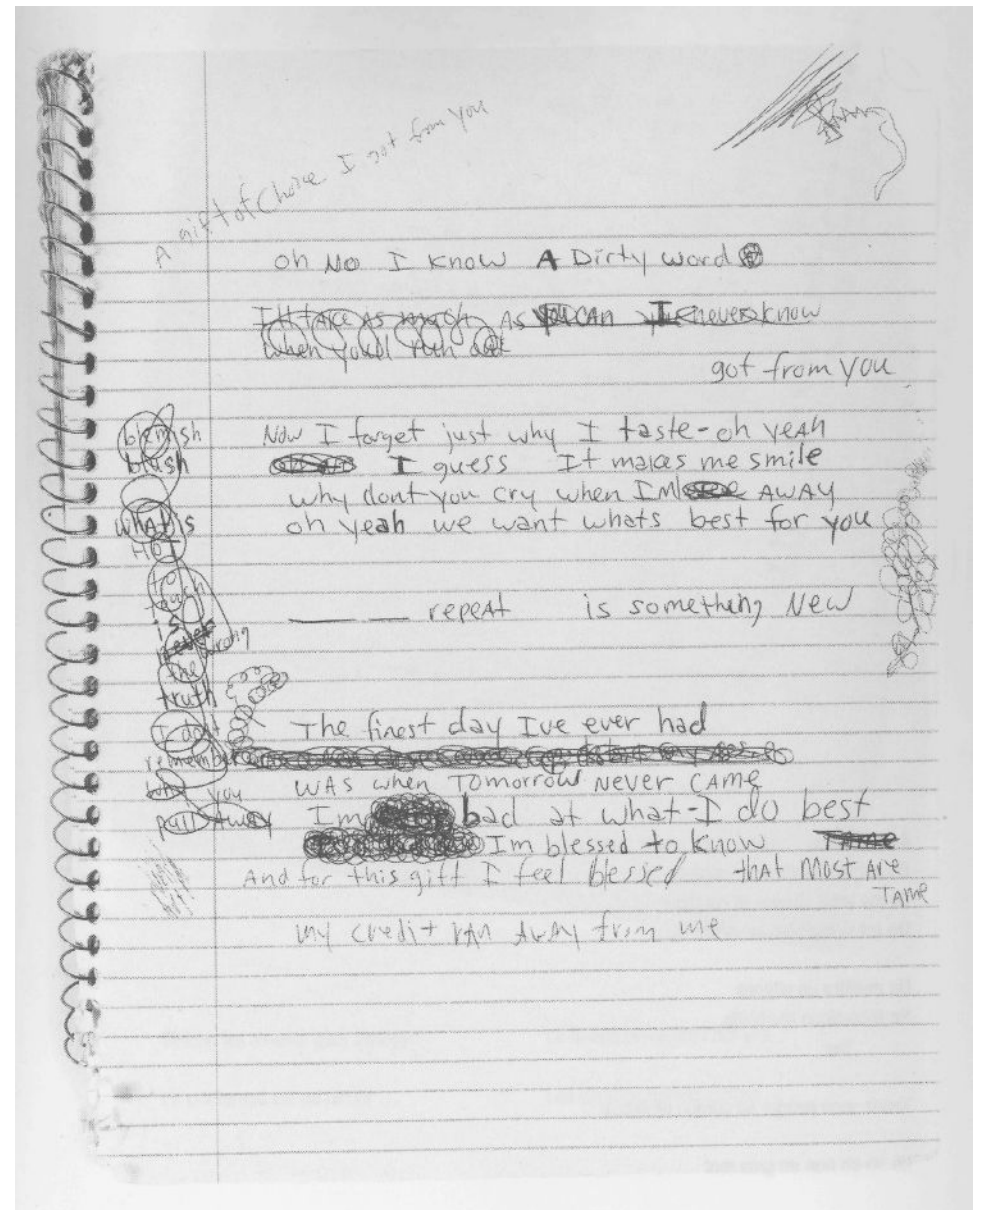 A gift of Choice I got from you
oh No I know A Dirty word
I'll take As much As you can I never know
when you'l run out
got from you
Now I forget just why I taste-oh yeah
I guess It makes me smile
why dont you cry when IM AWAY
oh yeah we want whats best for you
repeat is something New
The finest day Ive ever had
WAS when Tomorrow Never CAME
Im bad at what I do best
Im blessed to know Tame
And for this gift I feel blessed that Most Are
TAME
my credit ran Away from me
blemish
blush
whAt is
HOT
to
touch
is
never wrong
the
truth
I dont
remember
why you
pull Away